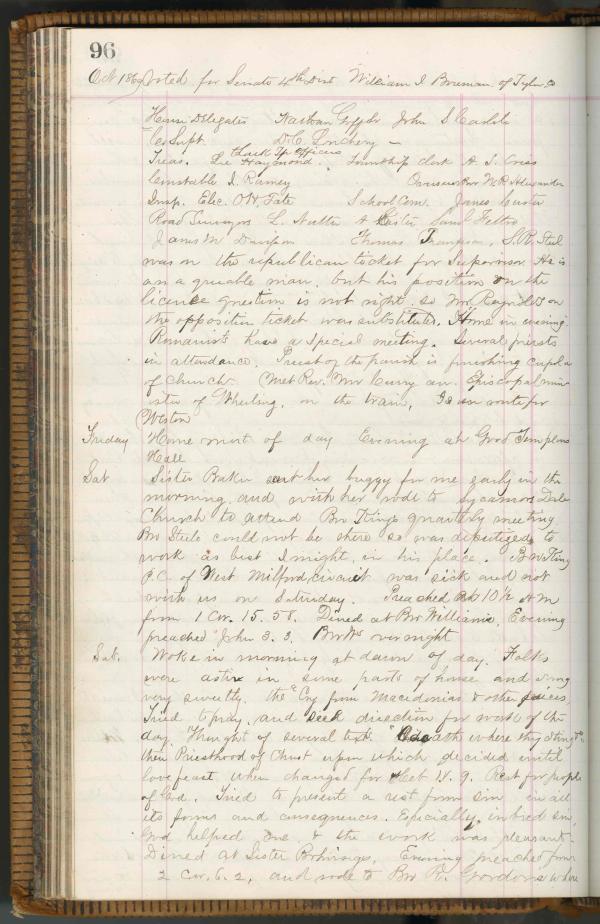 96
Oct 1869 Voted for Senate 4th Dist William I Boreman of Tyler Co
House Delegates Nathan Goff Jr John S Carlile
Co Supt. D.C. Louchery —
Treas. Lee Haymond. Township clerk A. J.
Constable I. Ramey W. R. Alexander
Insp. Elec. O W. Tate School Com. James
Road Surveyor L. Nutter A Saml
James M Davisson Thomas Thompson. S. R. Steel
was on the republican ticket for Supervisor. He is
an agreeable man, but his position on the
licence question is not right, so Mr Reynolds on
the opposition ticket was substituted. Home in evening
Romanists have a special meeting. Several priests
in attendance. Priest of the parish is finishing cupola
of Church. Met Rev. Mr Curry an Episcopal min
ister of Wheeling, on the train, Is en route for
Weston
Friday Home most of day Evening at Good Templars
Hall
Sat Sister Baker sent her buggy for me early in the
morning, and with her rode to Sycamore Dale
Church to attend Bro Kings quarterly meeting
Bro Steele could not be there so was deputized to
work as best I might, in his place. Bro King
P.C. of West Milford circuit was sick and not
with us on Saturday. Preached at 10½ A M
from 1 Cor. 15. 58. Dined at Bro Williams, Evening
preached John 3. 3. Bro Ws over night
Sat. Woke in morning at dawn of day. Folks
were astir in some parts of house and sung
very sweetly. the Cry from Macedonia & other pieces,
Tried to pray, and seek direction for work of the
day. Thought of several texts. "O death where thy sting" &c
then Priesthood of Christ upon which decided until
love feast when changed for Heb IV. 9. Rest for people
of God. Tried to present a rest from sin in all
its forms and consequences. Especially inbred sin,
God helped me & the work was pleasant-
Dined at Sister Evening preached from
2 Cor. 6. 2, and rode to Bro R. Gordons where